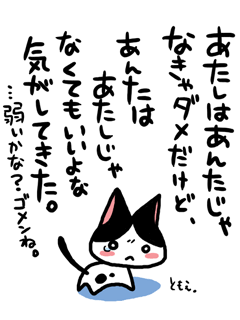 あたしはあんたじゃ
なきゃダメだけど、
あんたは
あたしじゃ
なくてもいいよな
気がしてきた。
…弱いかな?ゴメンね。
ともえ。